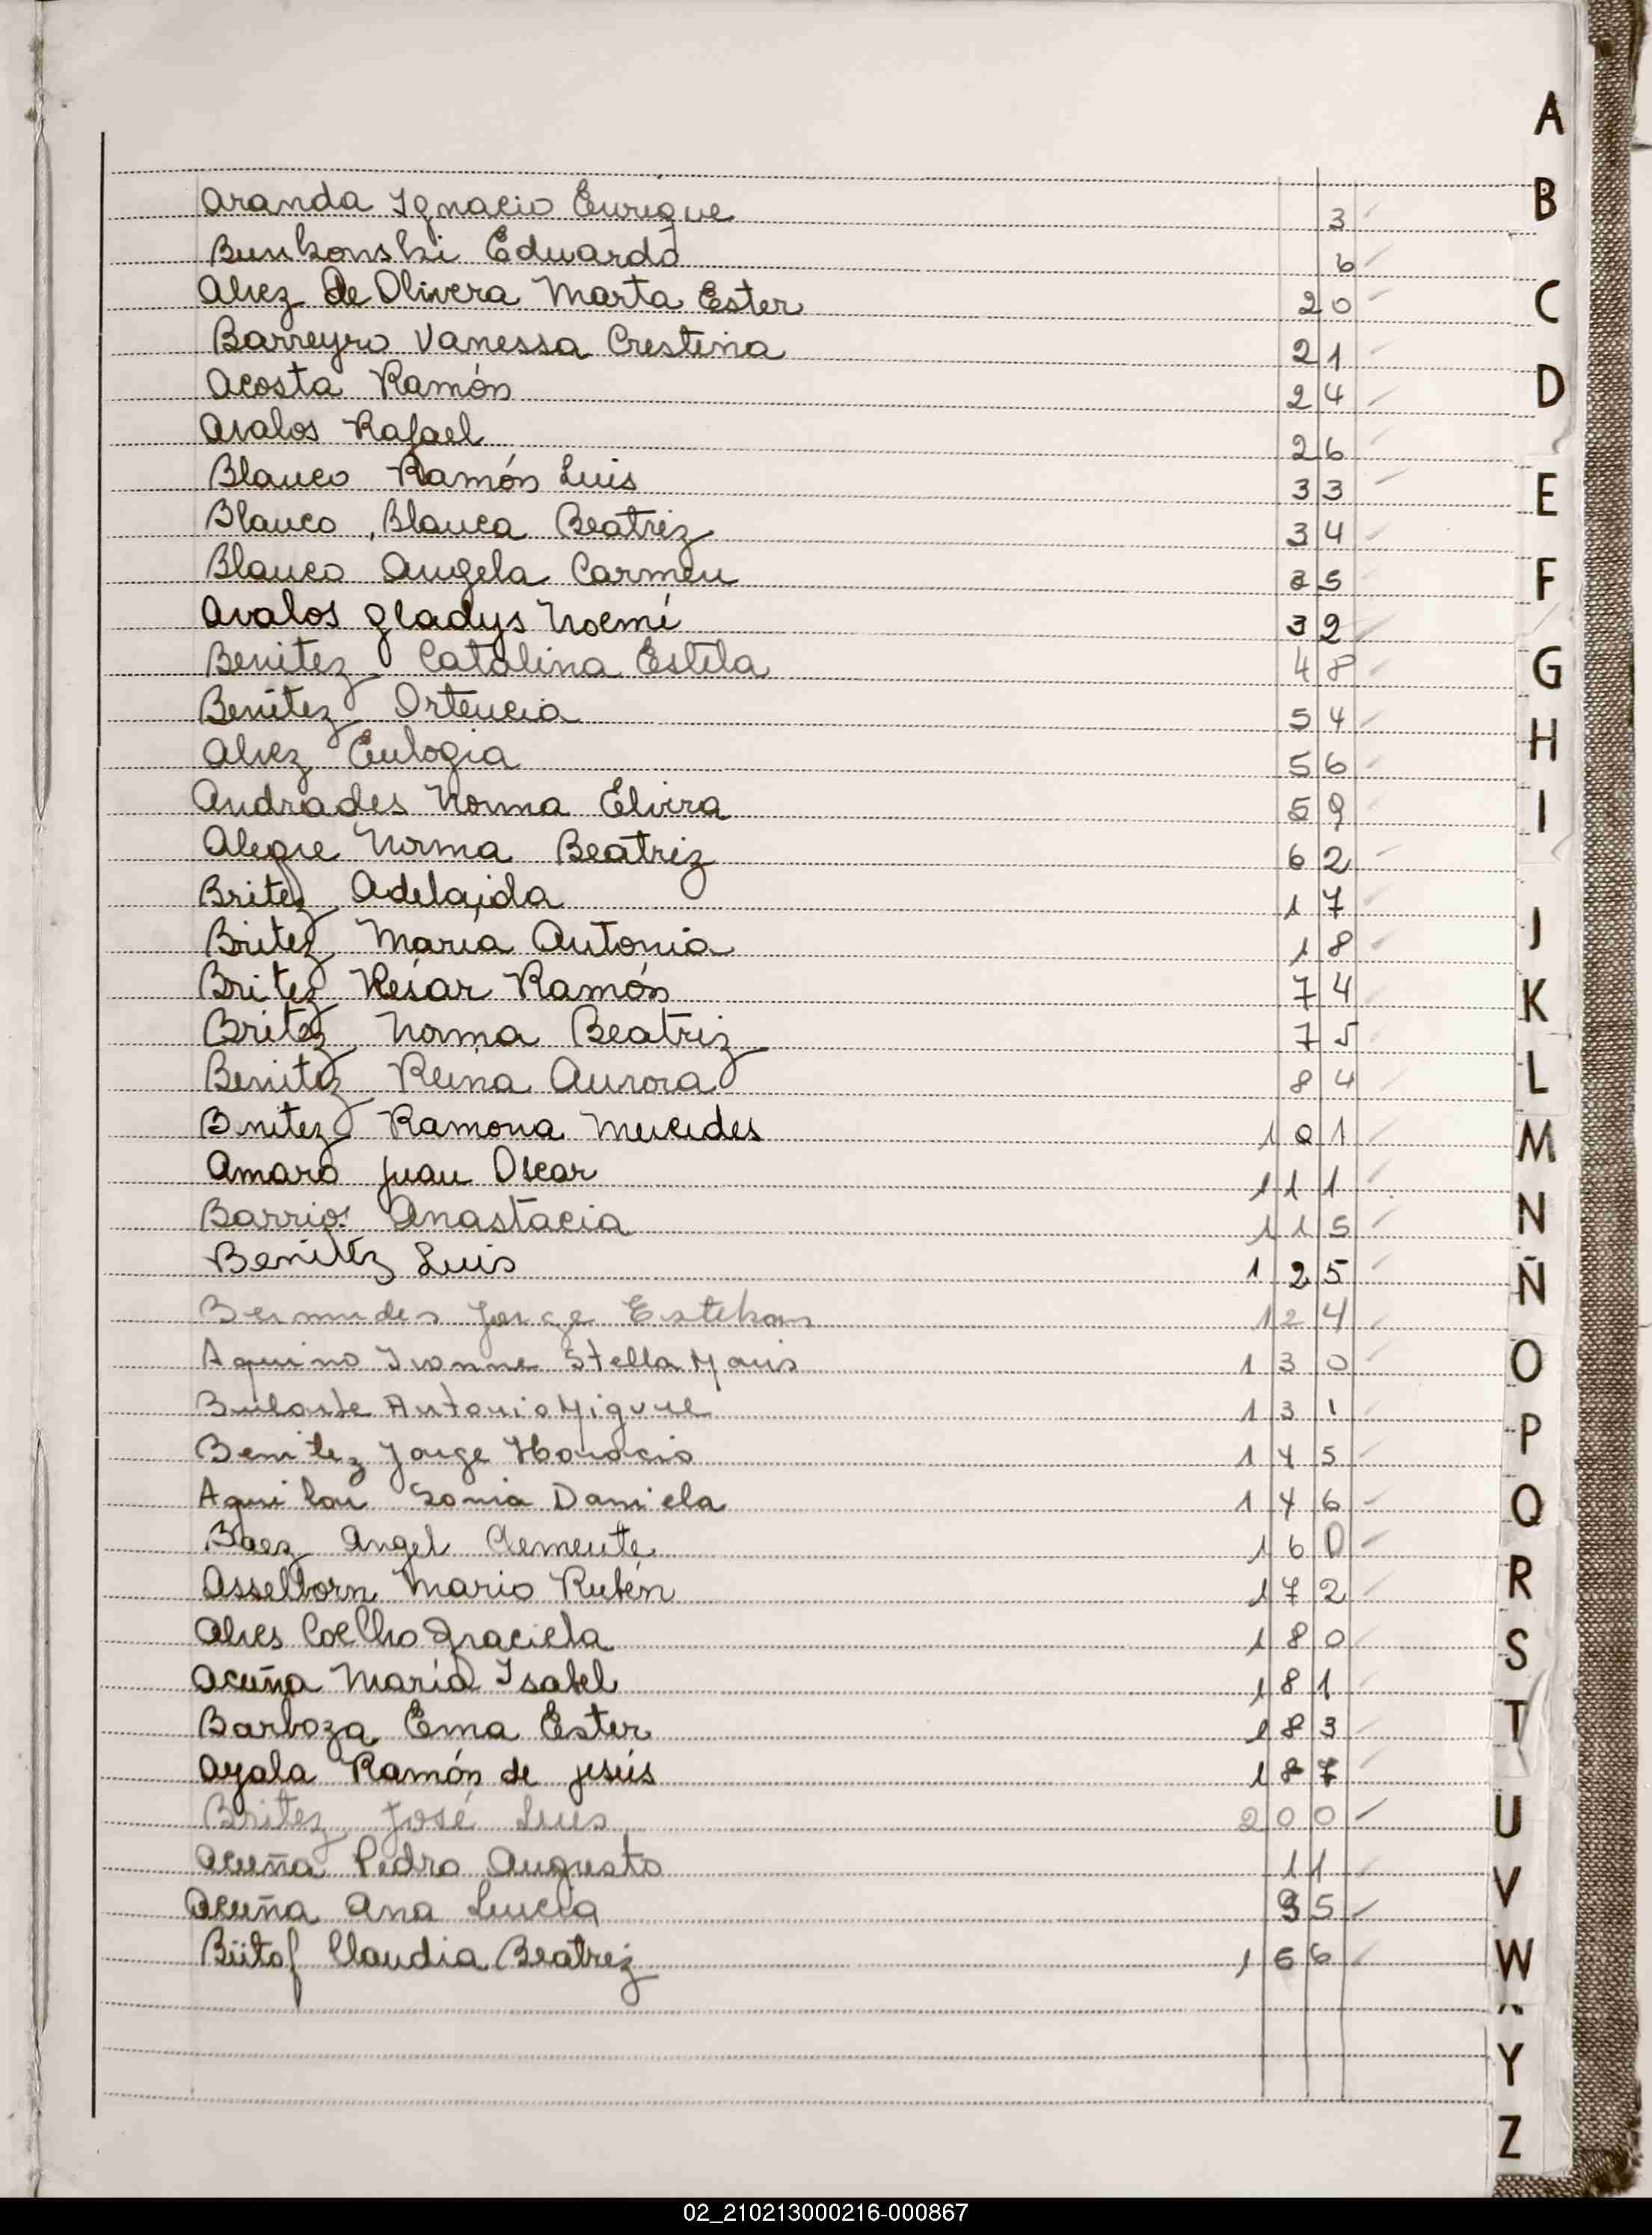 Aranda Ignacio Enrique 3
Bunkonski Eduardo 6
Alvez De Olivera Marta Ester 20
Barreyro Vanessa Crestina 21
Acosta Ramón 24
Avalos Rafael 26
Blanco Ramón Luis 33
Blanco, Blanca Beatriz 34
Blanco Angela Carmen 35
Avalos Gladys Noemí 39
Benitez Catalina Estela 48
Benítez Ortencia 54
Alvez Eulogia 56
Andrades Norma Elvira 59
Alegre Norma Beatriz 62
Britez Adelaida 17
Britez María Antonia 18
Britez César Ramón 74
Britez Norma Beatriz 75
Benitez Reina Aurora 84
Bnitez Ramona Mercedes 101
Amaro Juan Oscar 111
Barrios Anastacia 115
Benitéz Luis 125
Bermudes Jorge Esteban 124
Aquino Ivonne Stella Maris 130
Antonio Miguel 131
Benitez Jorge Horacio 145
Aguilar Sonia Daniela 146
Baez Angel Clemente 160
Asselborn Mario Rubén 172
Alves Coelho Graciela 180
Acuña María Isabel 181
Barboza Ema Ester 183
Ayala Ramón de Jesús 187
Britez José Luis 200
Acuña Pedro Augusto 11
Acuña Ana Lucía 95
Bütof Claudia Beatriz 166
A
B
C
D
E
F
G
H
I
J
K
L
M
N
Ñ
O
P
Q
R
S
T
U
V
W
Y
Z
02_210213000216-000867